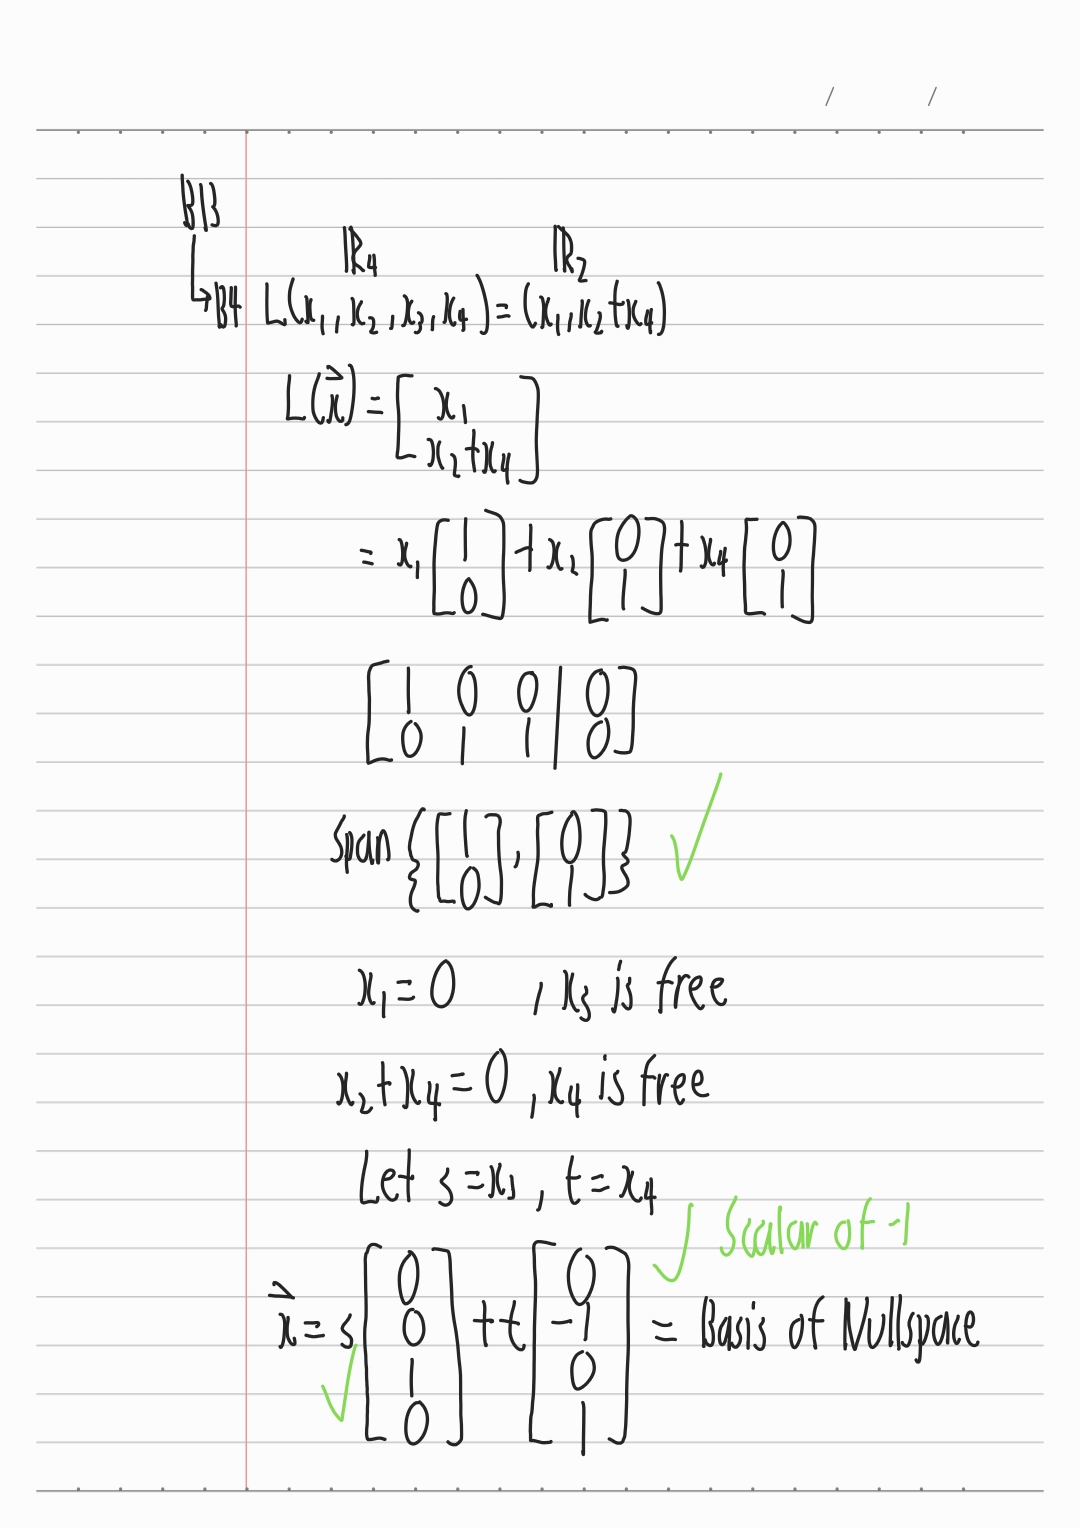 B13
ℝ4 ℝ2
→B4 L(x₁, x₂, x₃, x₄) = (x₁, x₂+x₄)
L(x⃗) = [x₁; x₂+x₄]
= x₁[1; 0] + x₂[0; 1] + x₄[0; 1]
[1 0 0 | 0; 0 1 1 | 0]
span {[1; 0], [0; 1]} ✓
x₁ = 0 , x₃ is free
x₂+x₄ = 0 , x₄ is free
Let s = x₃ , t = x₄
✓ Scalar of -1
x⃗ = s[0; 0; 1; 0] + t[0; -1; 0; 1] = Basis of Nullspace
✓